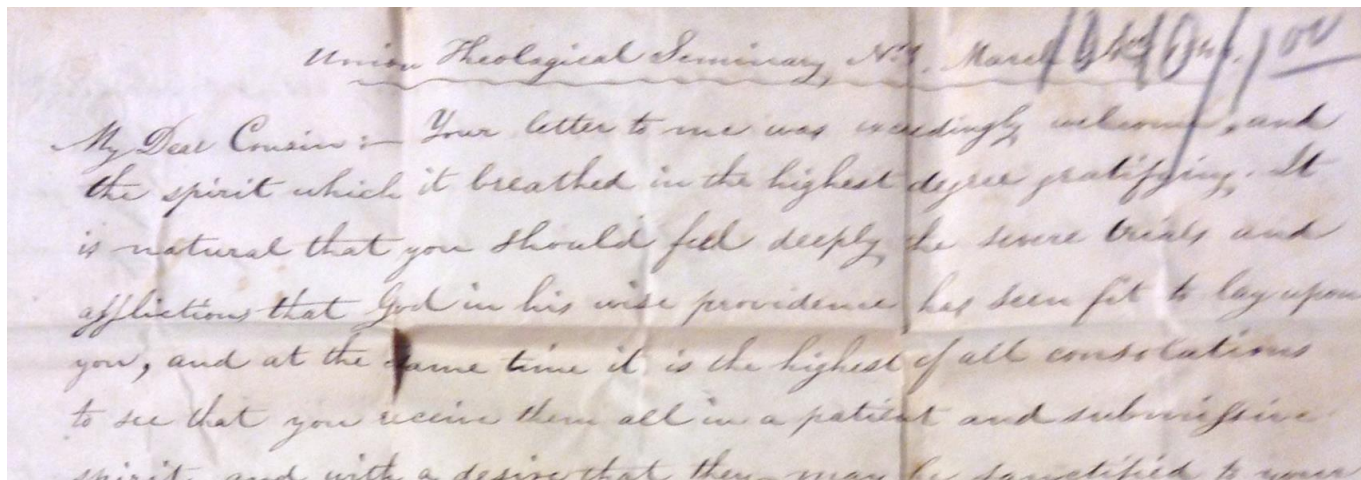 Union Theological Seminary, N.Y. March
My Dear Cousin :— Your letter to me was exceedingly welcome, and
the spirit which it breathed in the highest degree gratifying. It
is natural that you should feel deeply the severe trials and
affliction that God in his wise providence has seen fit to lay upon
you, and at the same time it is the highest of all consolations
to see that you receive them all in a patient and submissive
spirit, and with a desire that they may be sanctified to your